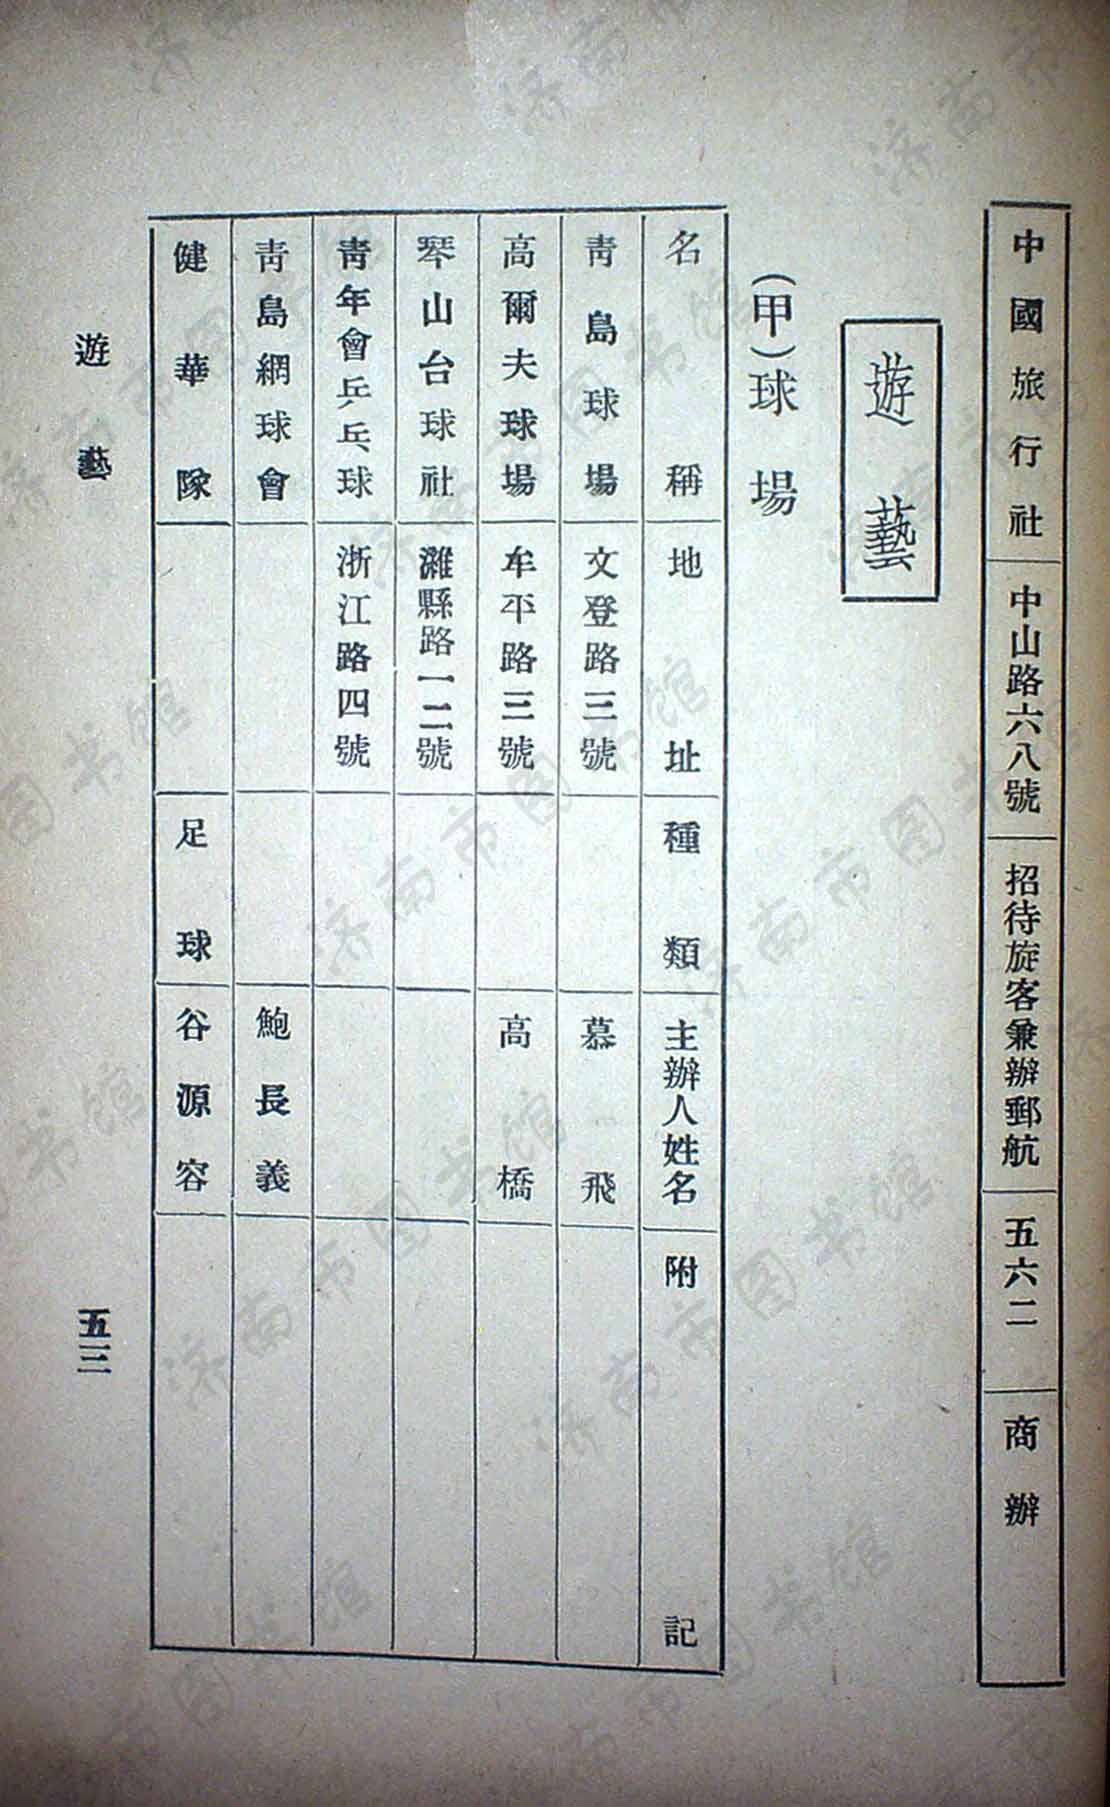 中國旅行社 中山路六八號 招待旋客兼辦郵航 五六二 商辦
遊藝
(甲)球場
名稱 地址 種類 主辦人姓名 附記
青島球場 文登路三號 慕飛
高爾夫球場 牟平路三號 高橋
琴山台球社 濰縣路一二號
青年會乒乓球 浙江路四號
青島網球會 鮑長義
健華隊 足球 谷源容
遊藝 五三
济南市图书馆